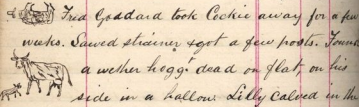 Fred Goddard took Cookie away for a few
weeks. Sawed strainer & got a few posts. Found
a wether hogg dead on flat, on his
side in a hollow. Lilly calved in the